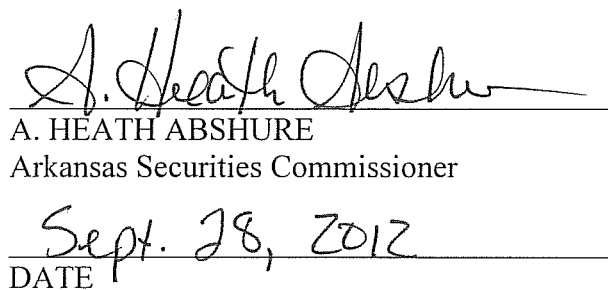 A. Heath Abshure
A. HEATH ABSHURE
Arkansas Securities Commissioner
Sept. 28, 2012
DATE